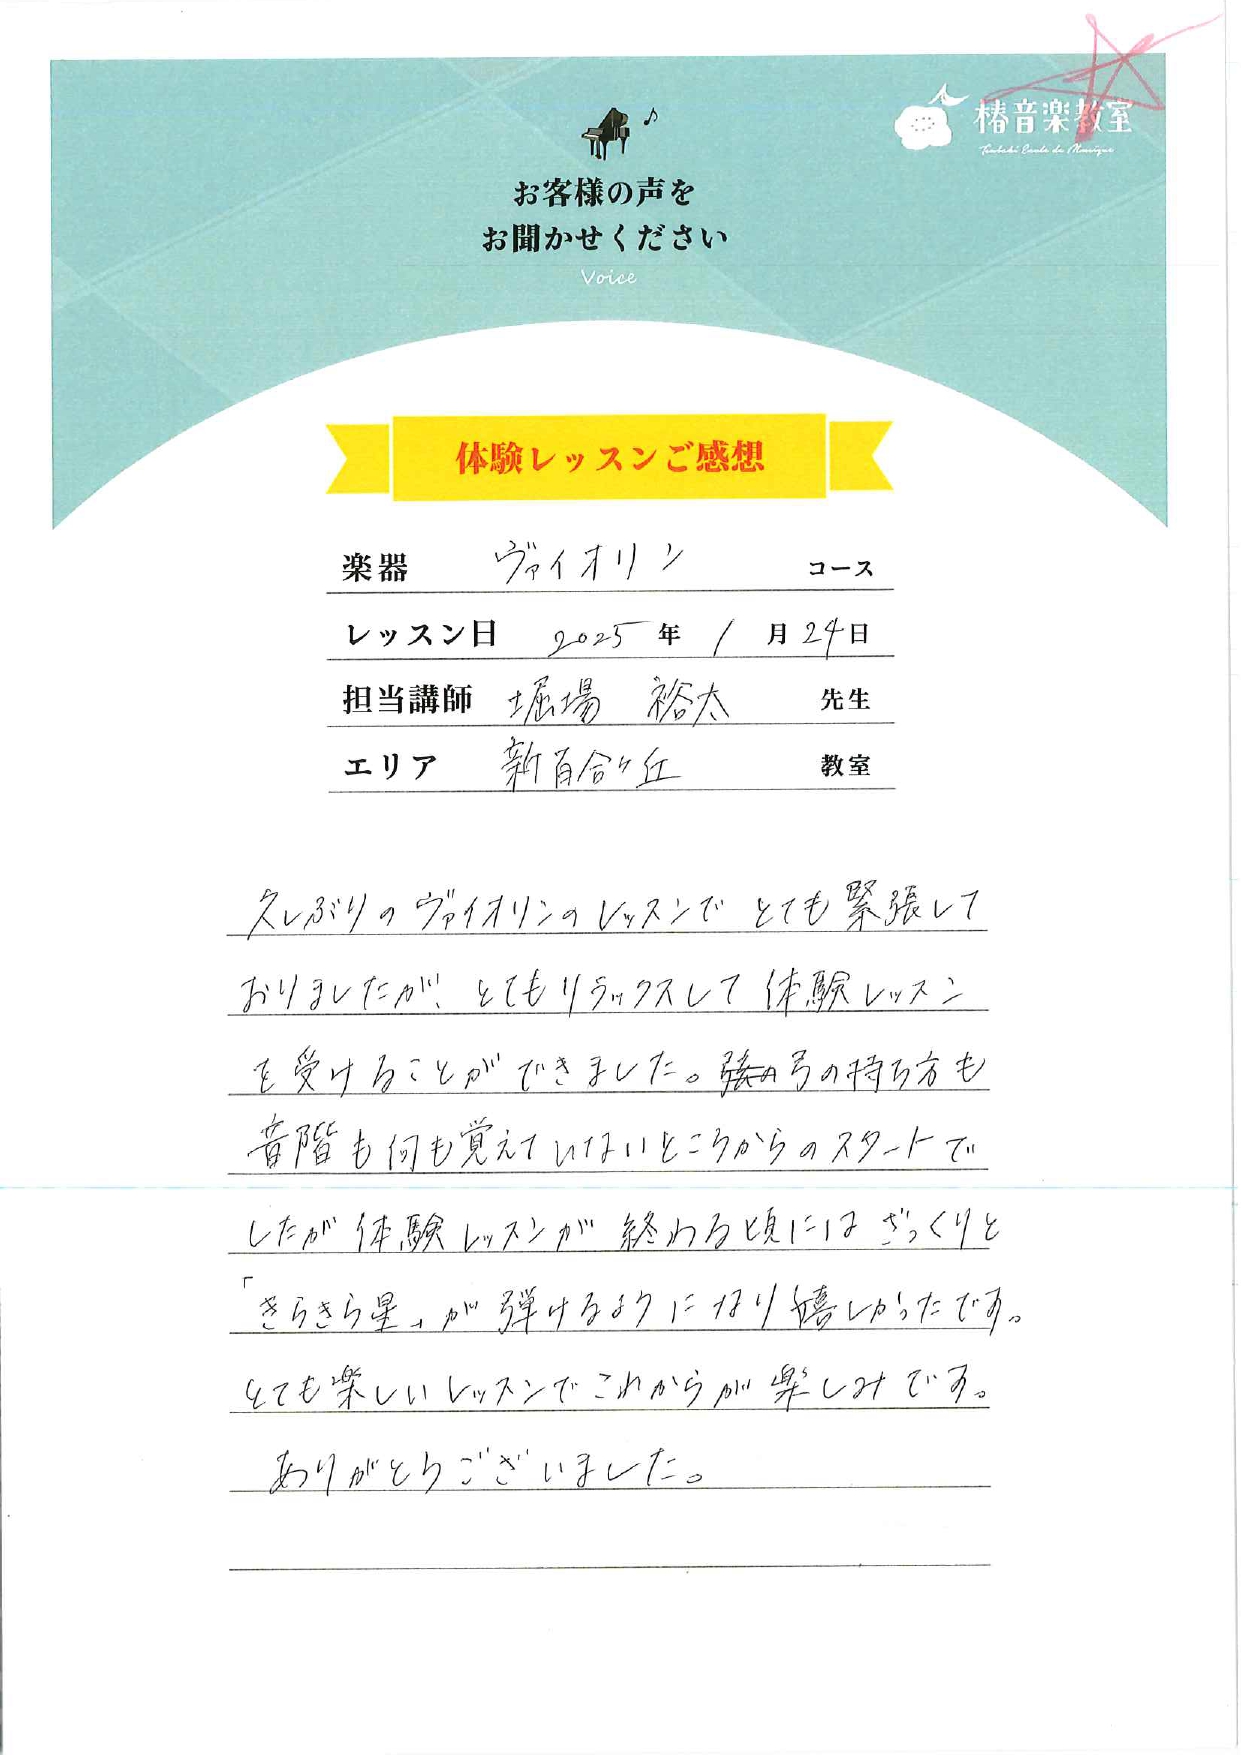 椿音楽教室
Tsubaki Ecole de Musique
お客様の声を
お聞かせください
Voice
体験レッスンご感想
楽器 ヴァイオリン コース
レッスン日 2025年 1月24日
担当講師 堀場 裕太 先生
エリア 新百合ヶ丘 教室
久しぶりのヴァイオリンのレッスンでとても緊張して
おりましたが、とてもリラックスして体験レッスン
を受けることができました。弓の持ち方も
音階も何も覚えていないところからのスタートで
したが体験レッスンが終わる頃にはざっくりと
「きらきら星」が弾けるようになり嬉しかったです。
とても楽しいレッスンでこれからが楽しみです。
ありがとうございました。